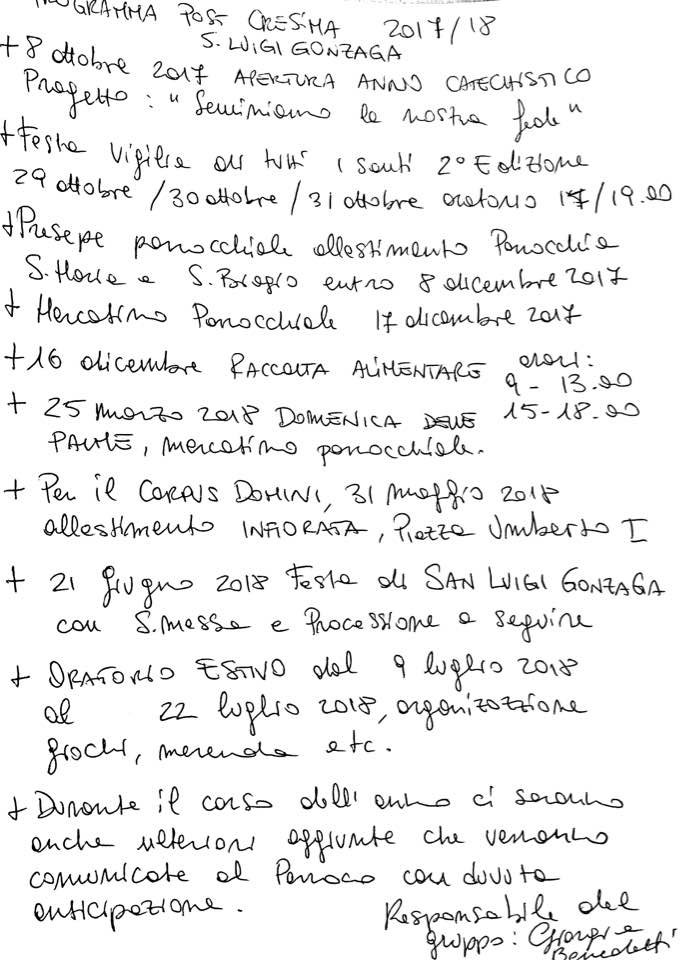 PROGRAMMA POST CRESIMA 2017/18
S. LUIGI GONZAGA
+ 8 ottobre 2017 APERTURA ANNO CATECHISTICO
Progetto: "Seminiamo la nostra fede"
+ Festa Vigilia di tutti i santi 2° Edizione
29 ottobre / 30 ottobre / 31 ottobre oratorio 17/19.00
+ Presepe parrocchiale allestimento Parrocchia
S. Maria e S. Biagio entro 8 dicembre 2017
+ Mercatino Parrocchiale 17 dicembre 2017
+ 16 dicembre RACCOLTA ALIMENTARE orari:
9 - 13.00
15-18.00
+ 25 marzo 2018 DOMENICA DELLE
PALME, mercatino parrocchiale.
+ Per il CORPUS DOMINI, 31 maggio 2018
allestimento INFIORATA, Piazza Umberto I
+ 21 giugno 2018 Festa di SAN LUIGI GONZAGA
con S. messa e Processione a seguire
+ ORATORIO ESTIVO dal 9 luglio 2018
al 22 luglio 2018, organizzazione
giochi, merenda etc.
+ Durante il corso dell'anno ci saranno
anche ulteriori aggiunte che verranno
comunicate al Parroco con dovuta
anticipazione.
Responsabile del
gruppo: Giorgia
Benedetti